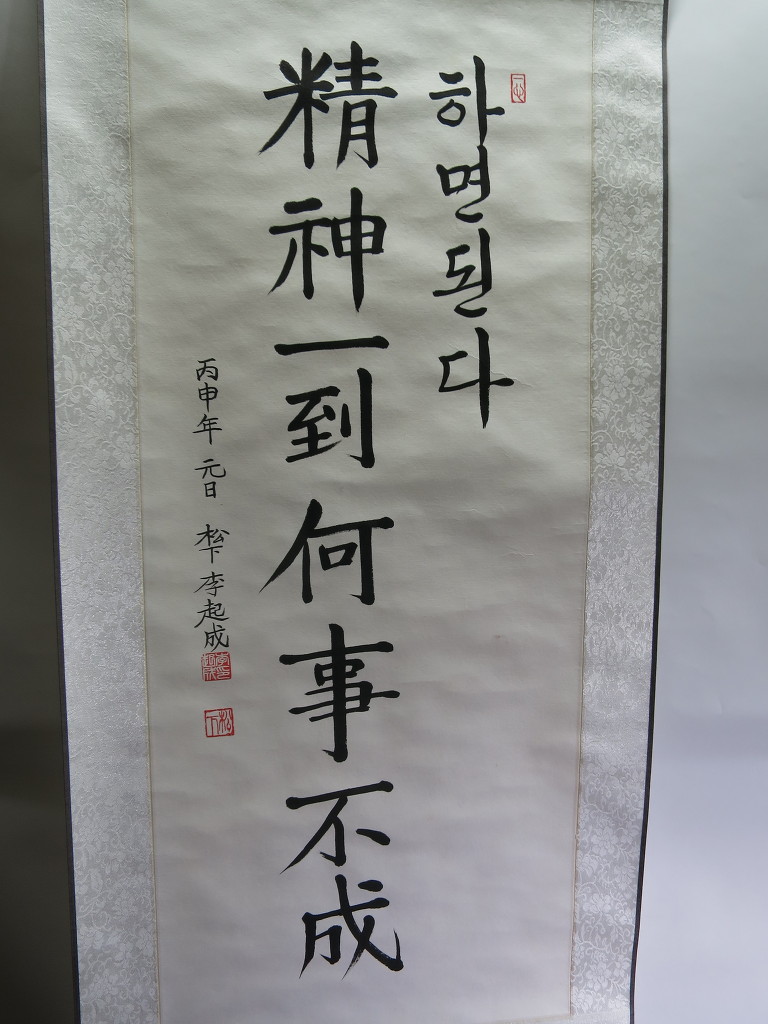 하면된다
精神一到何事不成
丙申年 元日 松下 李起成
松下